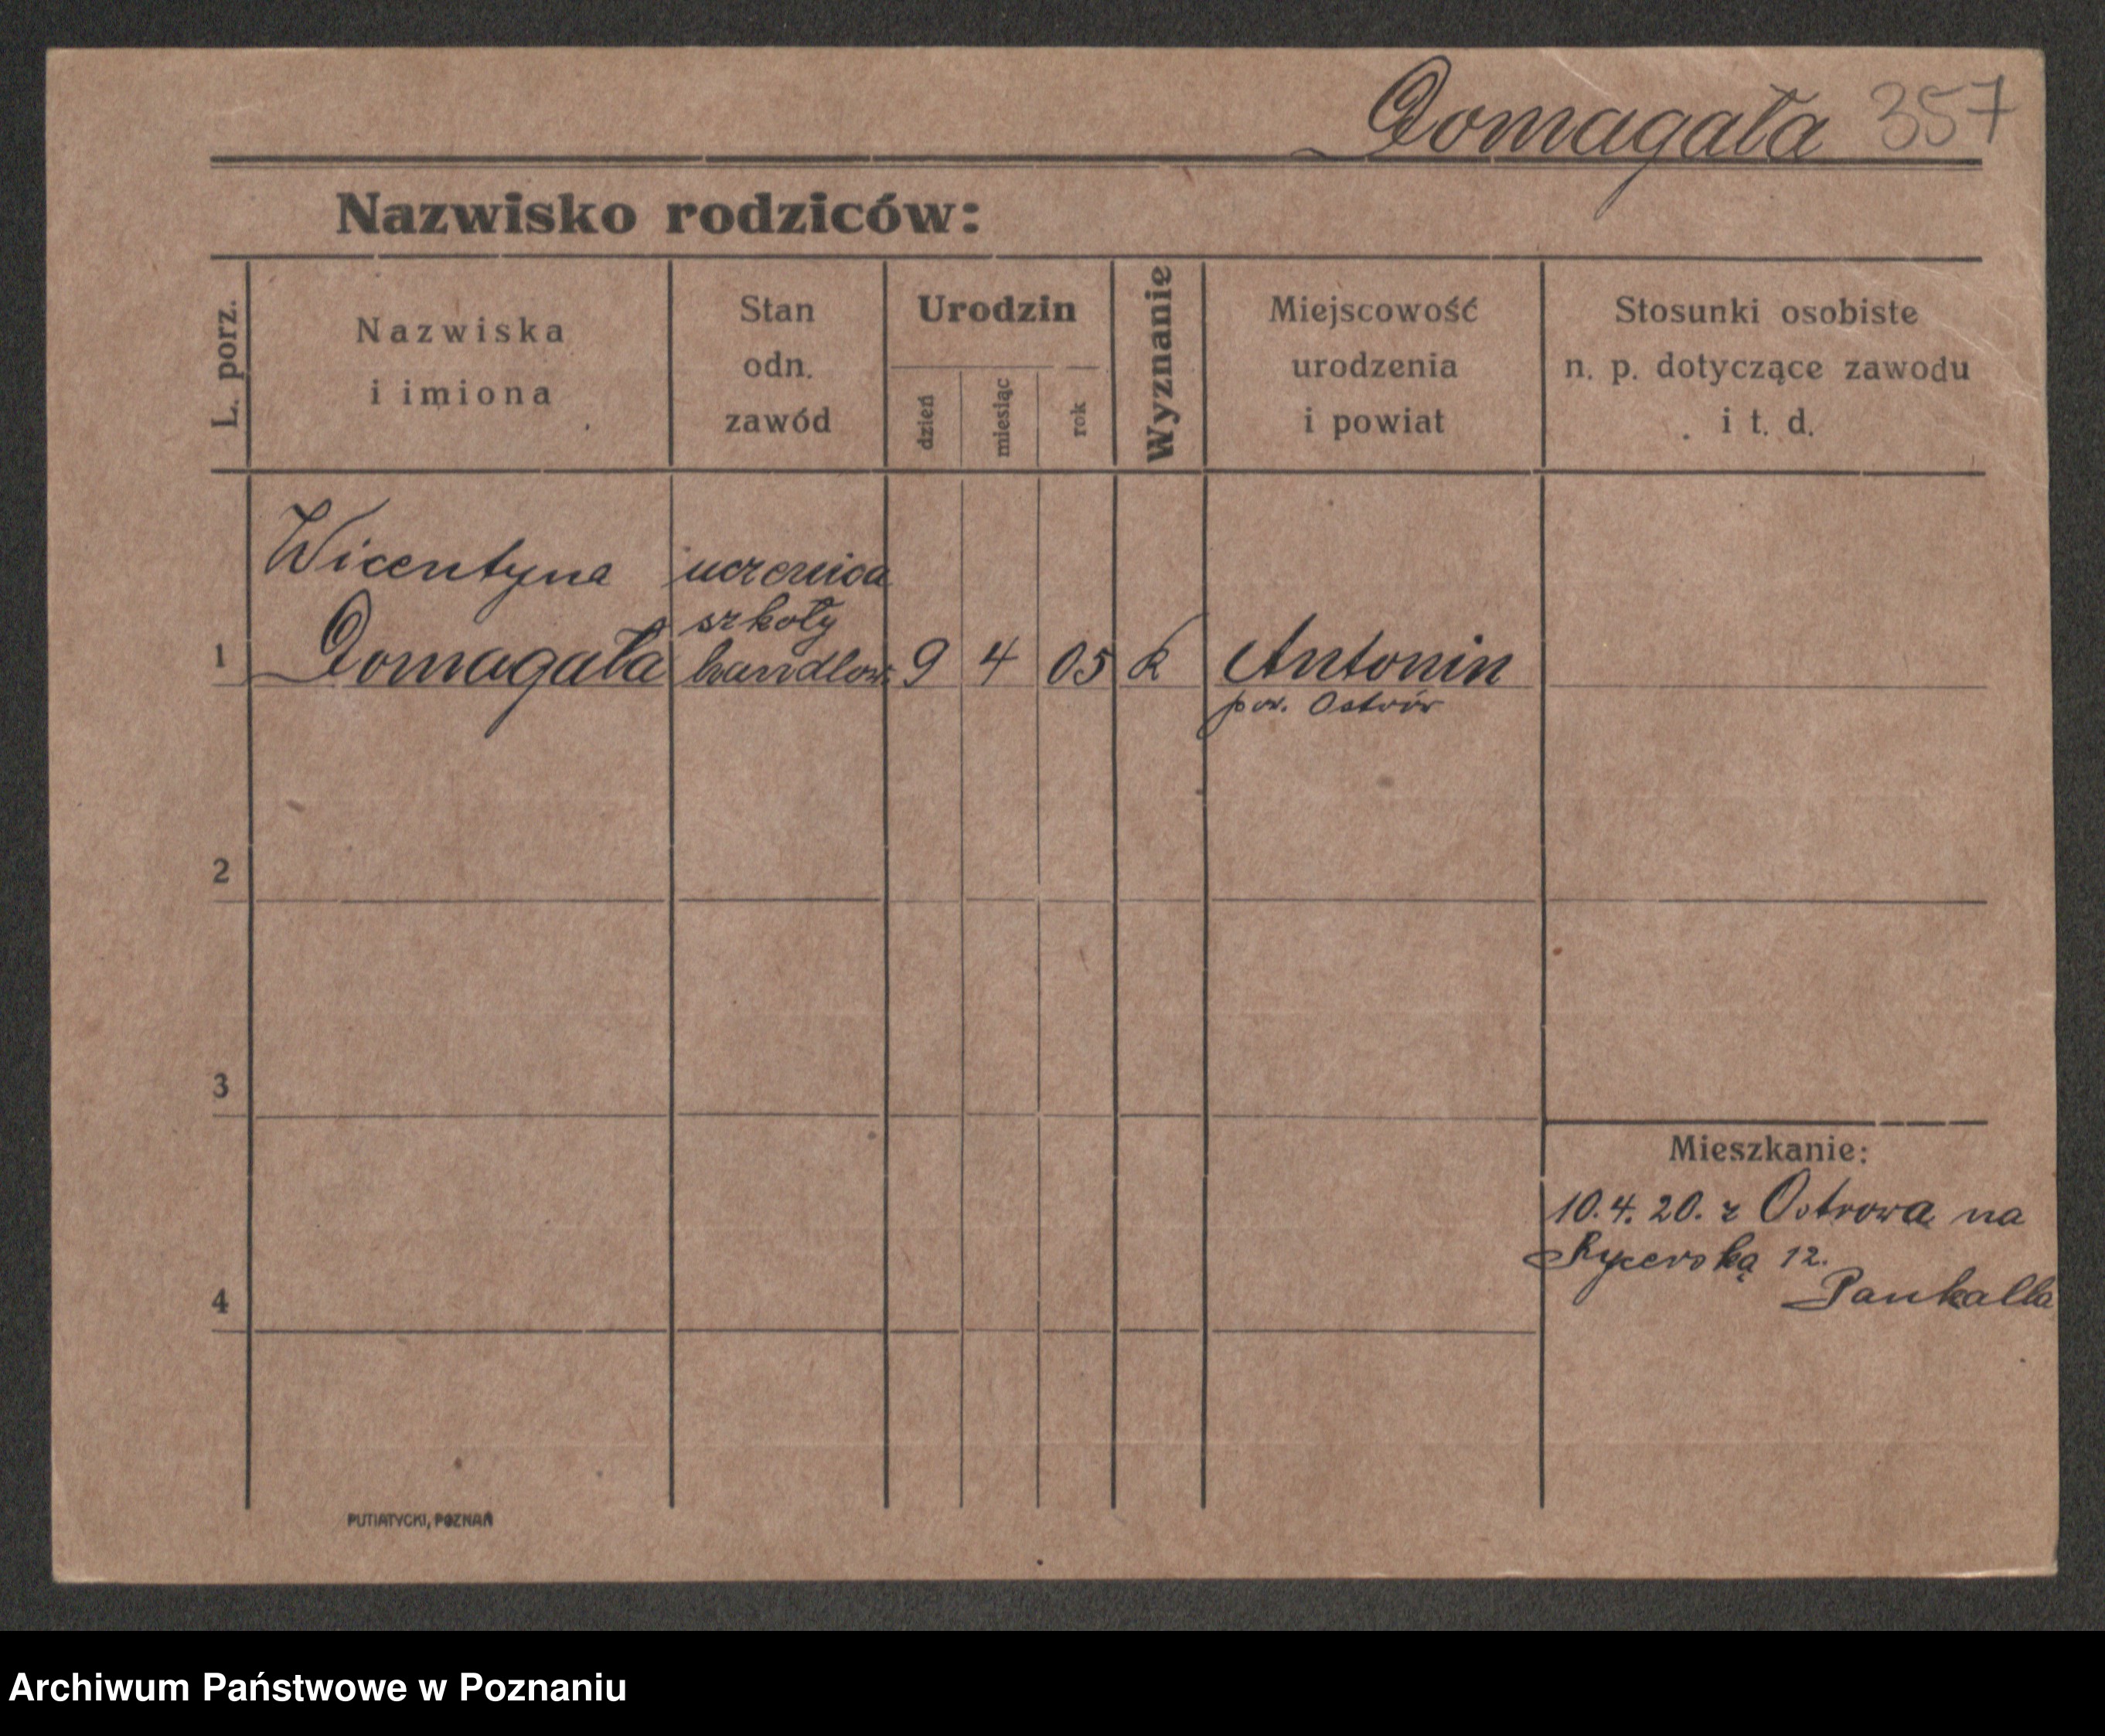 Domagała 357
Nazwisko rodziców:
L. porz.
Nazwiska
i imiona
Stan
odn.
zawód
Urodzin
dzień
miesiąc
rok
Wyznanie
Miejscowość
urodzenia
i powiat
Stosunki osobiste
n. p. dotyczące zawodu
i t. d.
Wicentyna
Domagała
uczenica
szkoły
handlow.
1
9 4 05 k Antonin
pow. Ostrów
2
3
4
Mieszkanie:
10.4.20. z Ostrowa na
Rycerską 12.
Pankalla
PUTIATYCKI, POZNAŃ
Archiwum Państwowe w Poznaniu